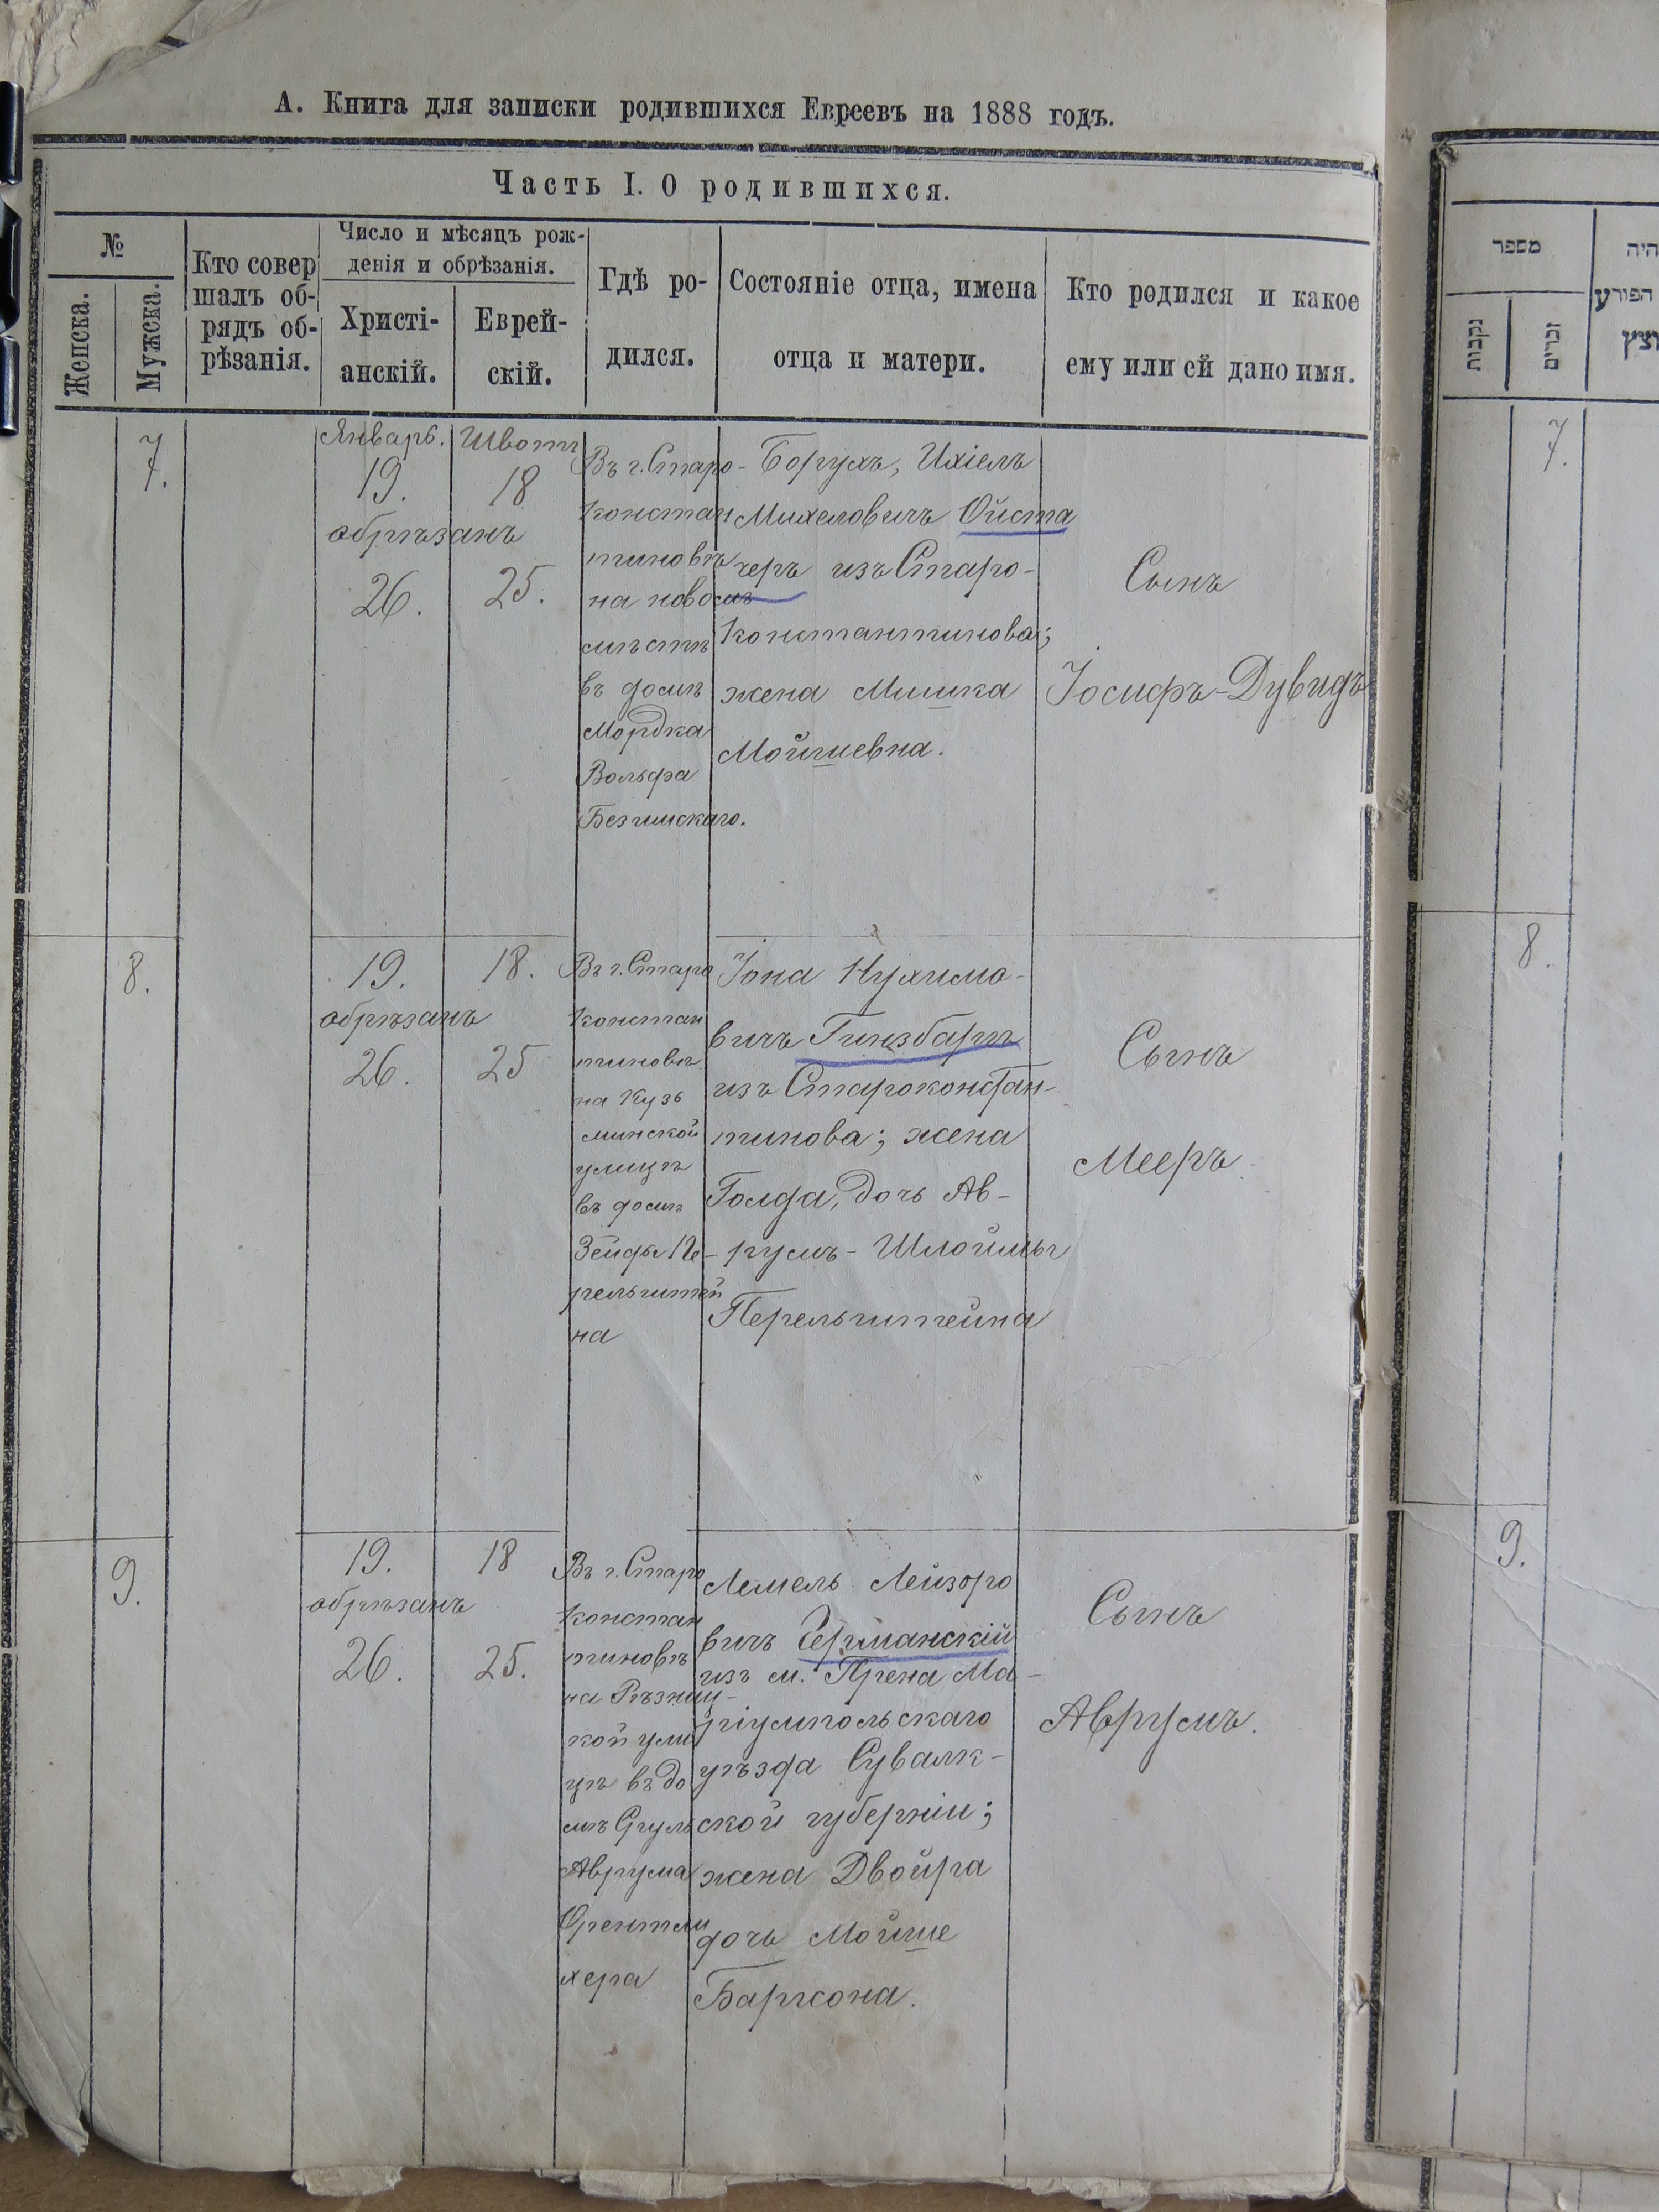 А. Книга для записки родившихся Евреевъ на 1888 годъ.
Часть I. О родившихся.
№
Женска.
Мужска.
Кто совер
шалъ об-
рядъ об-
рѣзанія.
Число и мѣсяцъ рож-
денія и обрѣзанія.
Христі-
анскій.
Еврей-
скій.
Гдѣ ро-
дился.
Состояніе отца, имена
отца и матери.
Кто родился и какое
ему или ей дано имя.
7.
Январь.
19.
обрѣзанъ
26.
Швотъ
18
25.
Въ г. Старо-
констан
тиновѣ
на новомъ
мѣстѣ
въ домѣ
Мордка
Вольфа
Борухъ, Ихіелъ
Михеловичъ Ойста
черъ изъ Старо-
константинова;
жена Мишка
Мойшевна.
Сынъ
Іосифъ-Дувидъ
8.
19.
обрѣзанъ
26.
18.
25
Въ г. Старо
констан
тиновѣ
на Кузь
минской
улицѣ
въ домѣ
Пе-
рельштей
на
Іона Нухимо-
вичъ Гинзбаргъ
изъ Староконстан-
тинова; жена
Голда, дочь Ав-
румъ-Шлоймы
Перельштейна
Сынъ
Мееръ.
9.
19.
обрѣзанъ
26.
18
25.
Въ г. Старо
констан
тиновѣ
на Рѣзниц-
кой ули
цѣ въ до
мѣ Сруль
Аврума
хера
Лемель Лейзоро
вичъ Германскій
изъ м. Прена Ма-
ріумпольскаго
уѣзда Сувалк-
ской губерніи;
жена Двойра
дочь Мойше
Барсона.
Сынъ
Аврумъ.
מספר
נקבות
זכרים
היה
הפורע
7.
8.
9.